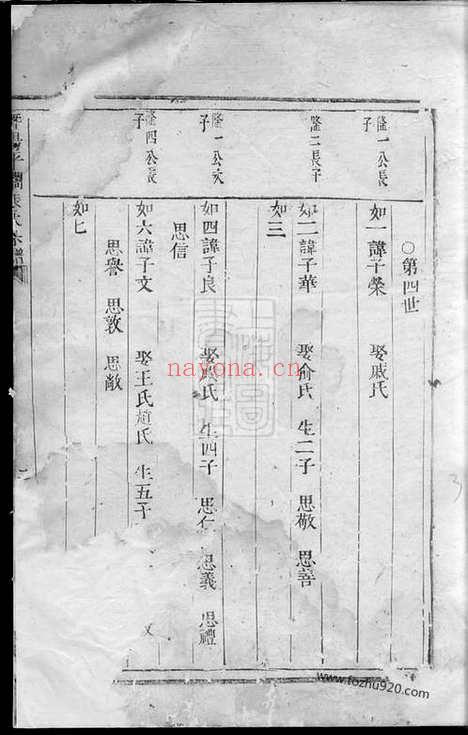 ○第四世
隆一公長
子
如一諱子榮 娶戚氏
隆二長子
如二諱子華 娶俞氏 生二子 思敬 思善
如三
隆一公次
子
如四諱子良 娶 氏 生四子 思仁 思義 思禮
思信
隆四公長
子
如六諱子文 娶王氏趙氏 生五子
思譽 思敦 思敵
如七
nayona.cn
www.fozhu920.com